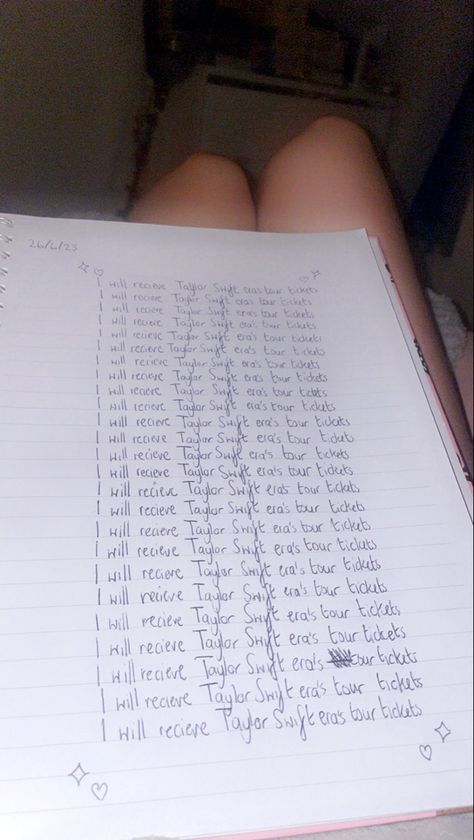 26/6/23
I will recieve Taylor Swift eras tour tickets
I will recieve Taylor Swift eras tour tickets
I will recieve Taylor Swift eras tour tickets
I will recieve Taylor Swift eras tour tickets
I will recieve Taylor Swift eras tour tickets
I will recieve Taylor Swift era's tour tickets
I will recieve Taylor Swift era's tour tickets
I will recieve Taylor Swift era's tour tickets
I will recieve Taylor Swift era's tour tickets
I will recieve Taylor Swift era's tour tickets
I will recieve Taylor Swift era's tour tickets
I will recieve Taylor Swift era's tour tickets
I will recieve Taylor Swift era's tour tickets
I will recieve Taylor Swift era's tour tickets
I will recieve Taylor Swift era's tour tickets
I will recieve Taylor Swift era's tour tickets
I will recieve Taylor Swift era's tour tickets
I will recieve Taylor Swift era's tour tickets
I will recieve Taylor Swift era's tour tickets
I will recieve Taylor Swift era's tour tickets
I will recieve Taylor Swift era's tour tickets
I will recieve Taylor Swift era's tour tickets
I will recieve Taylor Swift era's tour tickets
I will recieve Taylor Swift era's tour tickets
I will recieve Taylor Swift era's tour tickets